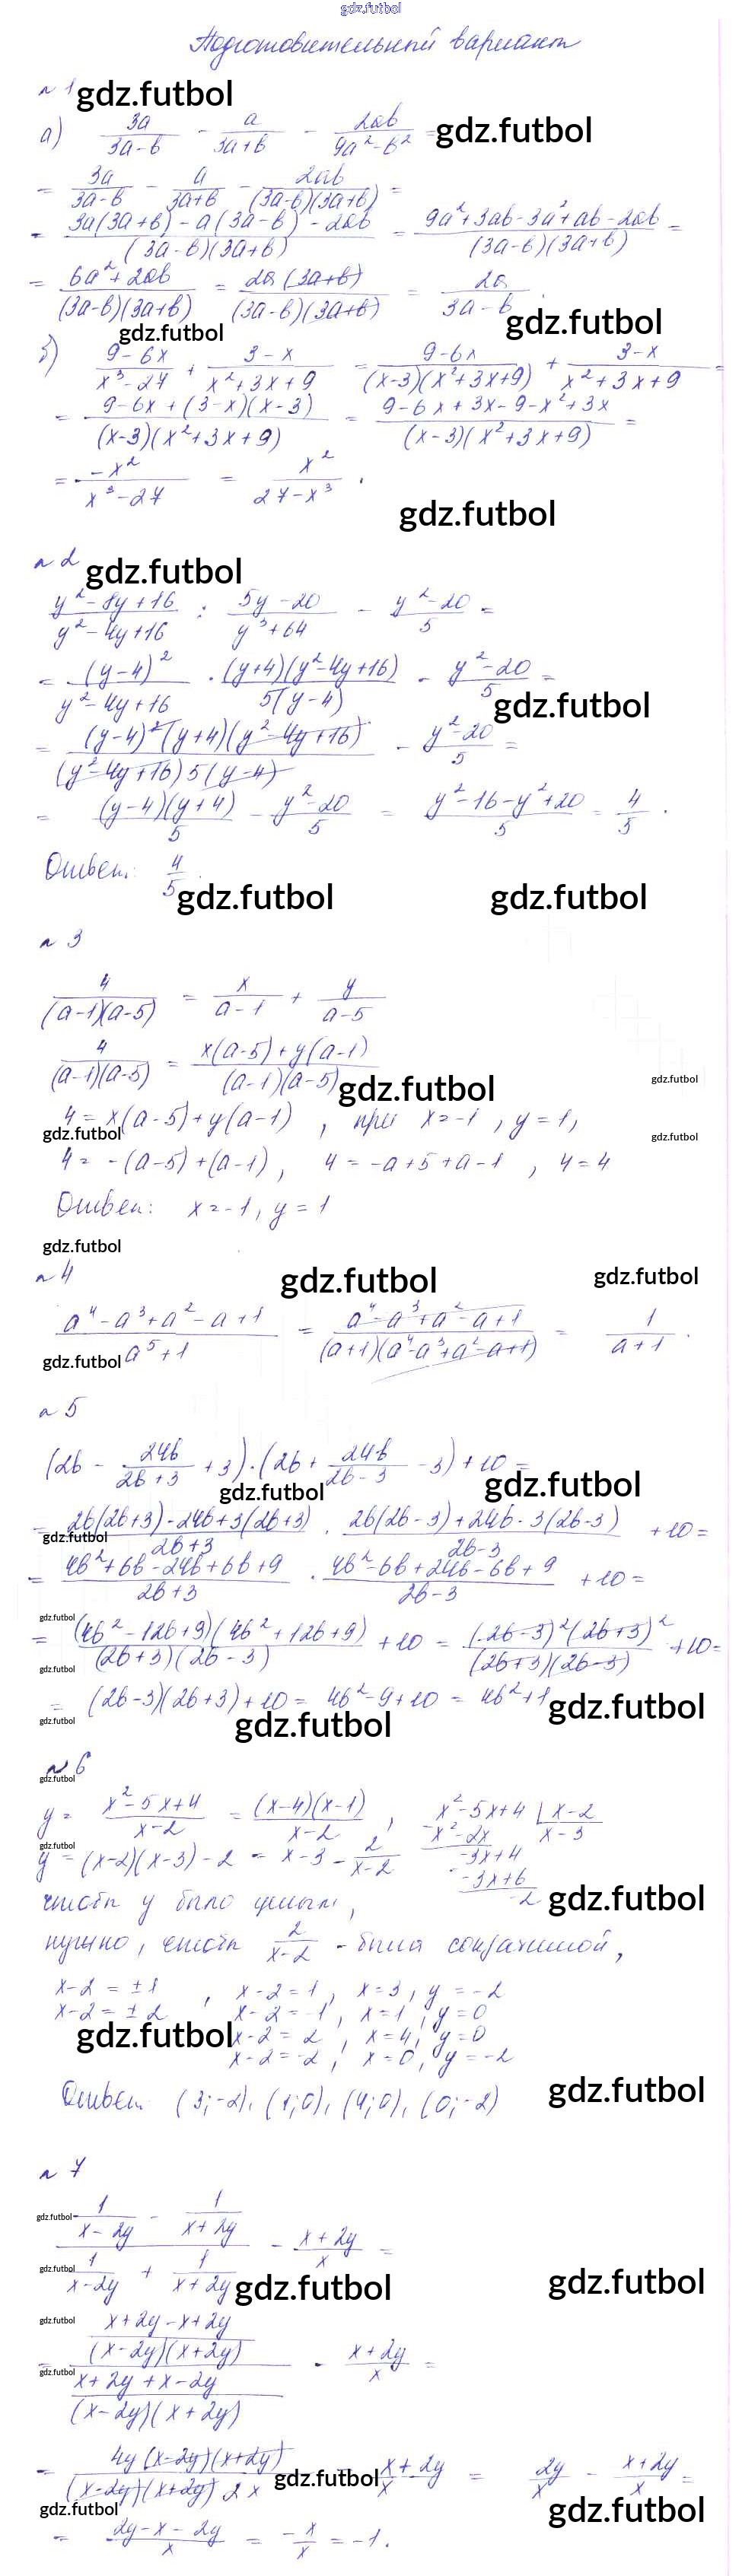 gdz.futbol
Подготовительный вариант
№ 1 gdz.futbol
а) 3a/(3a-b) - a/(3a+b) - 2ab/(9a²-b²) = gdz.futbol
= 3a/(3a-b) - a/(3a+b) - 2ab/((3a-b)(3a+b)) =
= (3a(3a+b) - a(3a-b) - 2ab)/((3a-b)(3a+b)) = (9a²+3ab-3a²+ab-2ab)/((3a-b)(3a+b)) =
= (6a²+2ab)/((3a-b)(3a+b)) = 2a(3a+b)/((3a-b)(3a+b)) = 2a/(3a-b).
gdz.futbol gdz.futbol
б) (9-6x)/(x³-27) + (3-x)/(x²+3x+9) = (9-6x)/((x-3)(x²+3x+9)) + (3-x)/(x²+3x+9) =
= (9-6x+(3-x)(x-3))/((x-3)(x²+3x+9)) = (9-6x+3x-9-x²+3x)/((x-3)(x²+3x+9)) =
= -x²/(x³-27) = x²/(27-x³).
gdz.futbol
№ 2 gdz.futbol
(y²-8y+16)/(y²-4y+16) : (5y-20)/(y³+64) - (y²-20)/5 =
= (y-4)²/(y²-4y+16) · (y+4)(y²-4y+16)/(5(y-4)) - (y²-20)/5 =
gdz.futbol
= (y-4)²(y+4)(y²-4y+16)/((y²-4y+16)5(y-4)) - (y²-20)/5 =
= (y-4)(y+4)/5 - (y²-20)/5 = (y²-16-y²+20)/5 = 4/5.
Ответ: 4/5.
gdz.futbol gdz.futbol
№ 3
4/((a-1)(a-5)) = x/(a-1) + y/(a-5)
4/((a-1)(a-5)) = (x(a-5)+y(a-1))/((a-1)(a-5))
gdz.futbol gdz.futbol
4 = x(a-5)+y(a-1), при x=-1, y=1,
gdz.futbol gdz.futbol
4 = -(a-5)+(a-1), 4 = -a+5+a-1, 4=4
Ответ: x=-1, y=1
gdz.futbol
№ 4 gdz.futbol gdz.futbol
(a⁴-a³+a²-a+1)/(a⁵+1) = (a⁴-a³+a²-a+1)/((a+1)(a⁴-a³+a²-a+1)) = 1/(a+1).
gdz.futbol
№ 5
(2b - 24b/(2b+3) + 3)·(2b + 24b/(2b-3) - 3) + 10 =
gdz.futbol gdz.futbol
= (2b(2b+3)-24b+3(2b+3))/(2b+3) · (2b(2b-3)+24b-3(2b-3))/(2b-3) + 10 =
gdz.futbol
= (4b²+6b-24b+6b+9)/(2b+3) · (4b²-6b+24b-6b+9)/(2b-3) + 10 =
gdz.futbol
= (4b²-12b+9)(4b²+12b+9)/((2b+3)(2b-3)) + 10 = (2b-3)²(2b+3)²/((2b+3)(2b-3)) + 10 =
gdz.futbol
= (2b-3)(2b+3)+10 = 4b²-9+10 = 4b²+1 gdz.futbol
gdz.futbol gdz.futbol
№ 6
gdz.futbol
y = (x²-5x+4)/(x-2) = (x-4)(x-1)/(x-2), x²-5x+4 | x-2
-x²-2x x-3
gdz.futbol
y = (x-2)(x-3)-2 = x-3 - 2/(x-2) -3x+4
-3x+6
-2
чтобы y было целым, gdz.futbol
нужно, чтобы 2/(x-2) - была сократимой,
x-2 = ±1, x-2=1, x=3, y=-2
x-2 = ±2 x-2=-1, x=1, y=0
gdz.futbol x-2=2, x=4, y=0
x-2=-2, x=0, y=-2
Ответ: (3;-2), (1;0), (4;0), (0;-2) gdz.futbol
№ 7
gdz.futbol
(1/(x-2y) - 1/(x+2y))/(1/(x-2y) + 1/(x+2y)) - (x+2y)/x =
gdz.futbol gdz.futbol gdz.futbol
gdz.futbol
= ((x+2y-x+2y)/((x-2y)(x+2y)))/((x+2y+x-2y)/((x-2y)(x+2y))) - (x+2y)/x =
gdz.futbol
= 4y(x-2y)(x+2y)/((x-2y)(x+2y)2x) - (x+2y)/x = 2y/x - (x+2y)/x =
gdz.futbol
gdz.futbol gdz.futbol
= (2y-x-2y)/x = -x/x = -1.